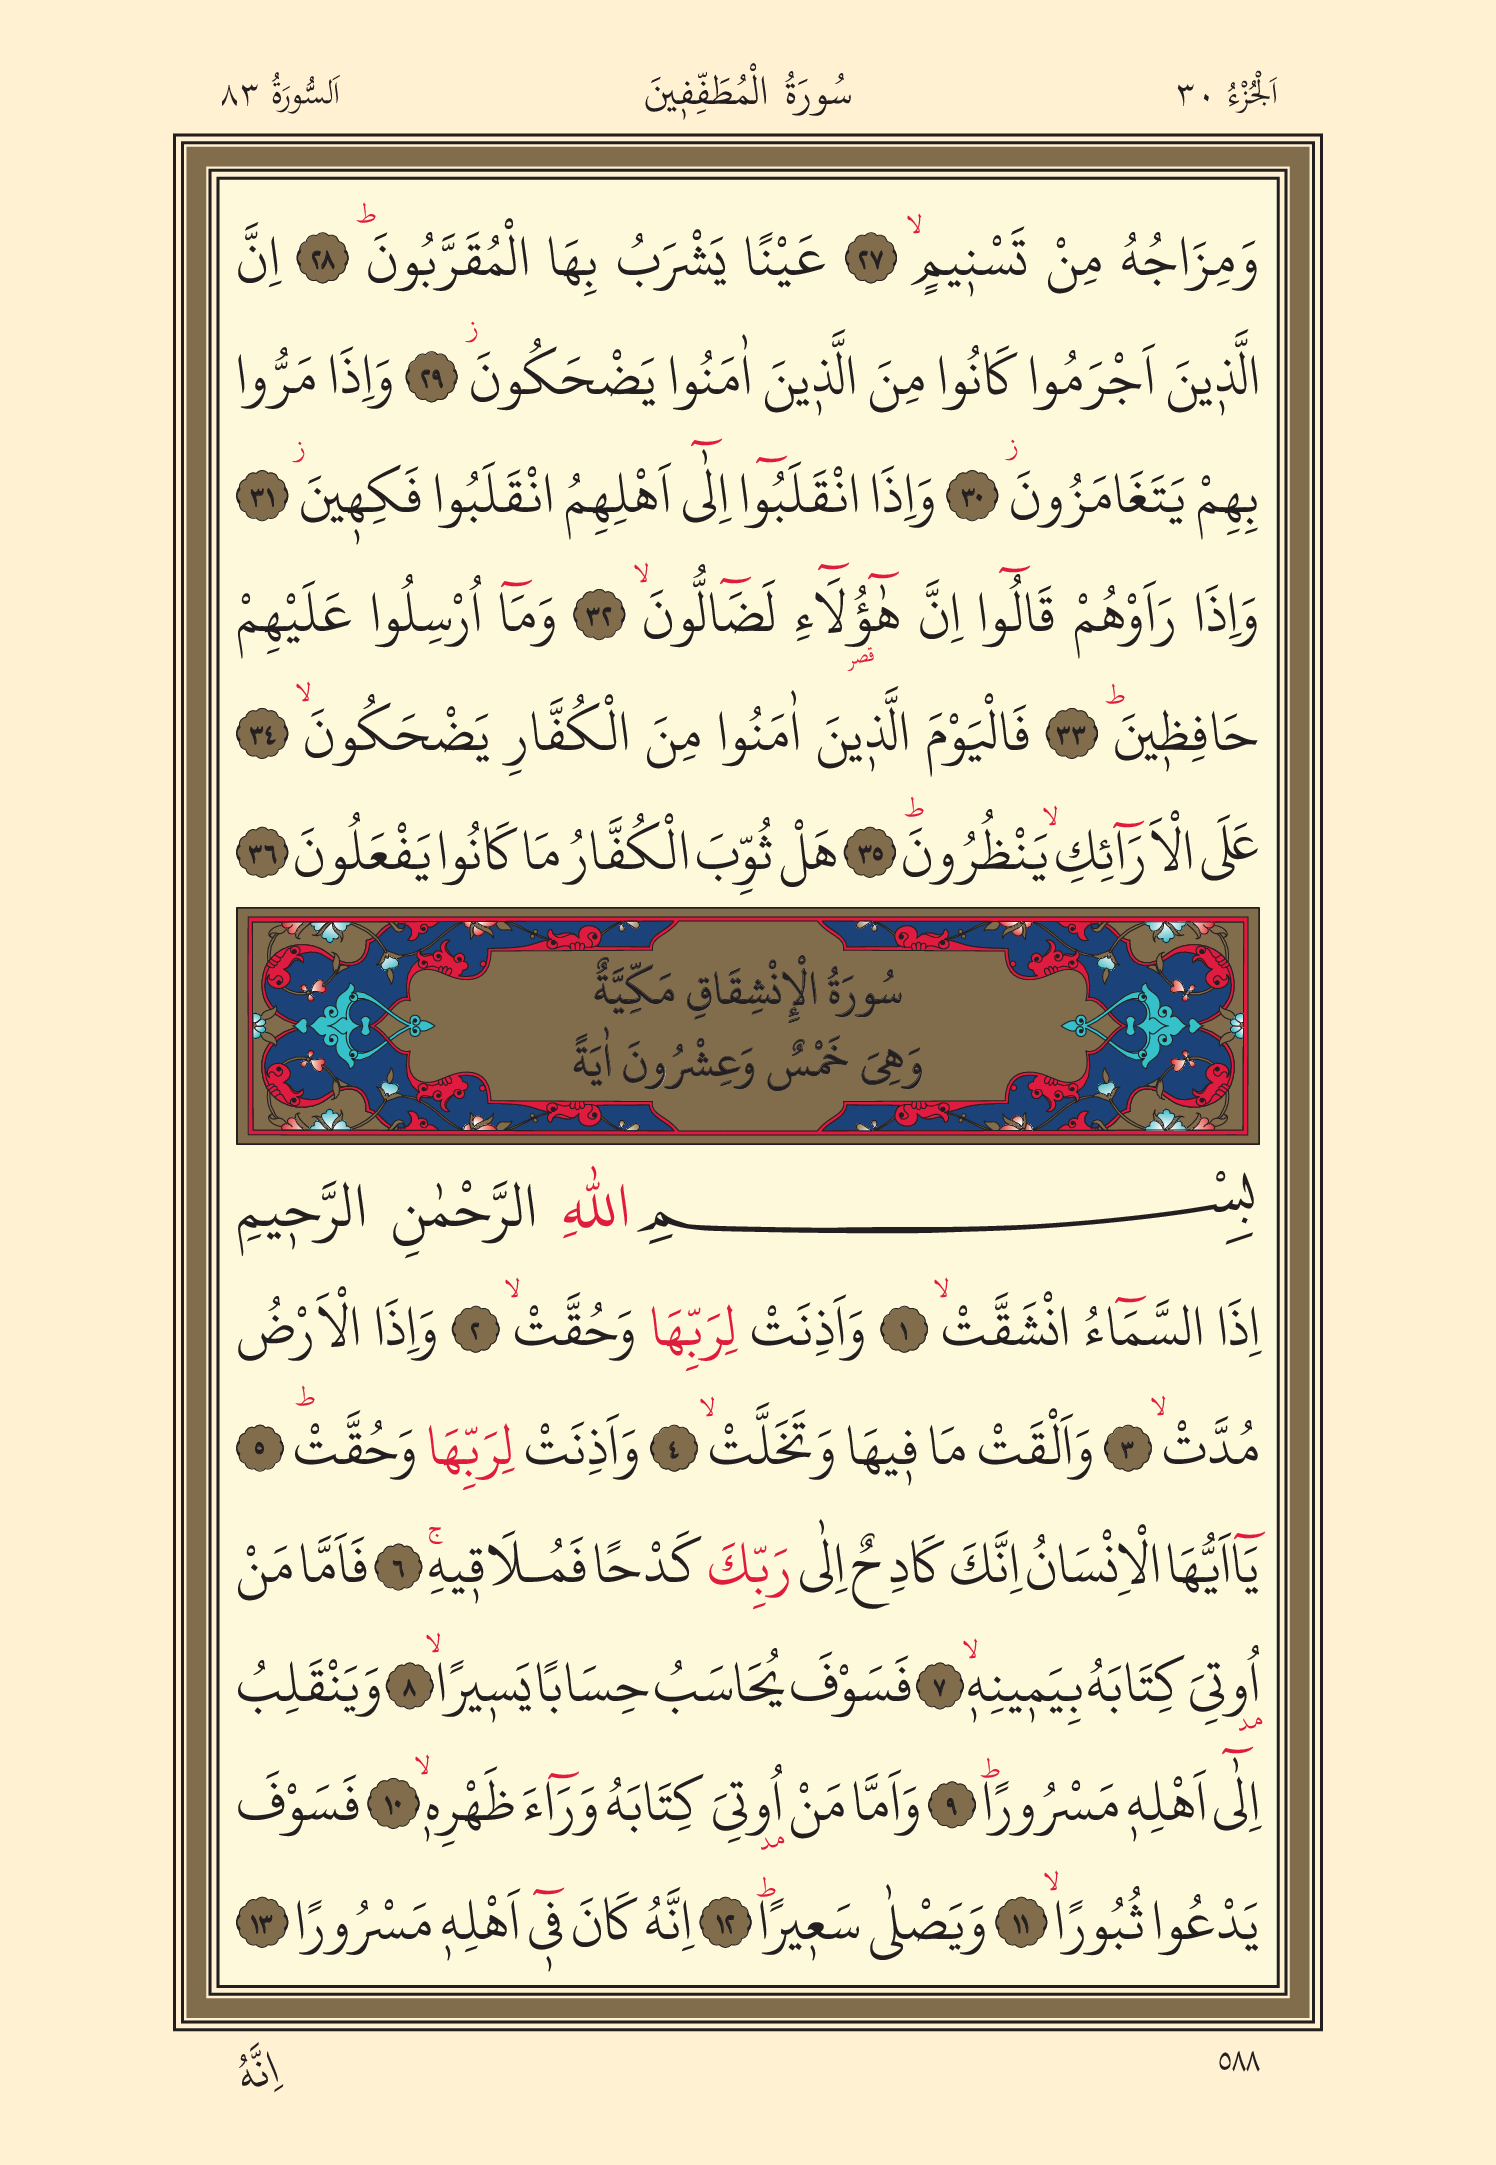 اَلْجُزْءُ ٣٠
سُورَةُ الْمُطَفِّفٖينَ
اَلسُّورَةُ ٨٣
وَمِزَاجُهُ مِنْ تَسْنٖيمٍۙ ٢٧ عَيْنًا يَشْرَبُ بِهَا الْمُقَرَّبُونَؕ ٢٨ اِنَّ
الَّذٖينَ اَجْرَمُوا كَانُوا مِنَ الَّذٖينَ اٰمَنُوا يَضْحَكُونَؗ ٢٩ وَاِذَا مَرُّوا
بِهِمْ يَتَغَامَزُونَؗ ٣٠ وَاِذَا انْقَلَبُٓوا اِلٰٓى اَهْلِهِمُ انْقَلَبُوا فَكِهٖينَؗ ٣١
وَاِذَا رَاَوْهُمْ قَالُٓوا اِنَّ هٰٓؤُ۬لَٓاءِ لَضَٓالُّونَۙ ٣٢ وَمَٓا اُرْسِلُوا عَلَيْهِمْ
قصر
حَافِظٖينَؕ ٣٣ فَالْيَوْمَ الَّذٖينَ اٰمَنُوا مِنَ الْكُفَّارِ يَضْحَكُونَۙ ٣٤
عَلَى الْاَرَٓائِكِۙ يَنْظُرُونَؕ ٣٥ هَلْ ثُوِّبَ الْكُفَّارُ مَا كَانُوا يَفْعَلُونَ ٣٦
سُورَةُ الْإِنْشِقَاقِ مَكِّيَّةٌ
وَهِىَ خَمْسٌ وَعِشْرُونَ اٰيَةً
بِسْمِ اللّٰهِ الرَّحْمٰنِ الرَّحٖيمِ
اِذَا السَّمَٓاءُ انْشَقَّتْۙ ١ وَاَذِنَتْ لِرَبِّهَا وَحُقَّتْۙ ٢ وَاِذَا الْاَرْضُ
مُدَّتْۙ ٣ وَاَلْقَتْ مَا فٖيهَا وَتَخَلَّتْۙ ٤ وَاَذِنَتْ لِرَبِّهَا وَحُقَّتْؕ ٥
يَٓااَيُّهَا الْاِنْسَانُ اِنَّكَ كَادِحٌ اِلٰى رَبِّكَ كَدْحًا فَمُلَاقٖيهِۚ ٦ فَاَمَّا مَنْ
اُو۫تِىَ كِتَابَهُ بِيَمٖينِهٖۙ ٧ فَسَوْفَ يُحَاسَبُ حِسَابًا يَسٖيرًاۙ ٨ وَيَنْقَلِبُ
مد
اِلٰٓى اَهْلِهٖ مَسْرُورًاؕ ٩ وَاَمَّا مَنْ اُو۫تِىَ كِتَابَهُ وَرَٓاءَ ظَهْرِهٖۙ ١٠ فَسَوْفَ
مد
يَدْعُوا ثُبُورًاۙ ١١ وَيَصْلٰى سَعٖيرًاؕ ١٢ اِنَّهُ كَانَ فٖٓى اَهْلِهٖ مَسْرُورًا ١٣
٥٨٨
اِنَّهُ